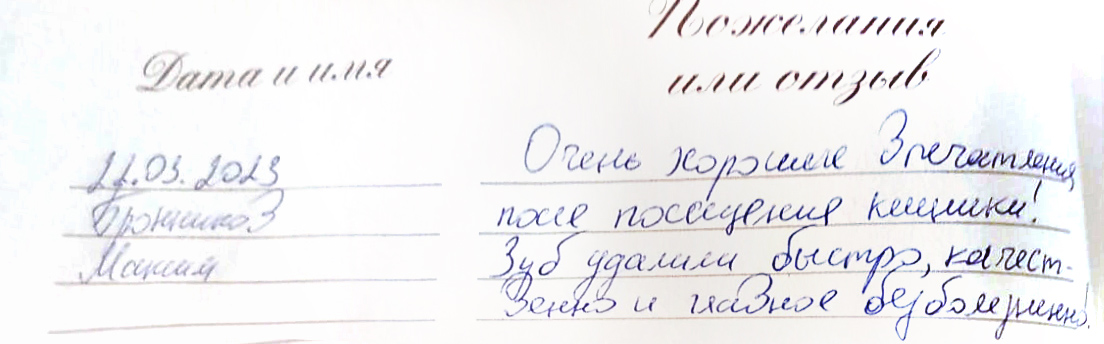 Пожелания
Дата и имя
или отзыв
Очень хорошие Впечатления
22.03.2023
после посещения клиники!
Максим
Зуб удалили быстро, качест-
венно и главное безболезненно!